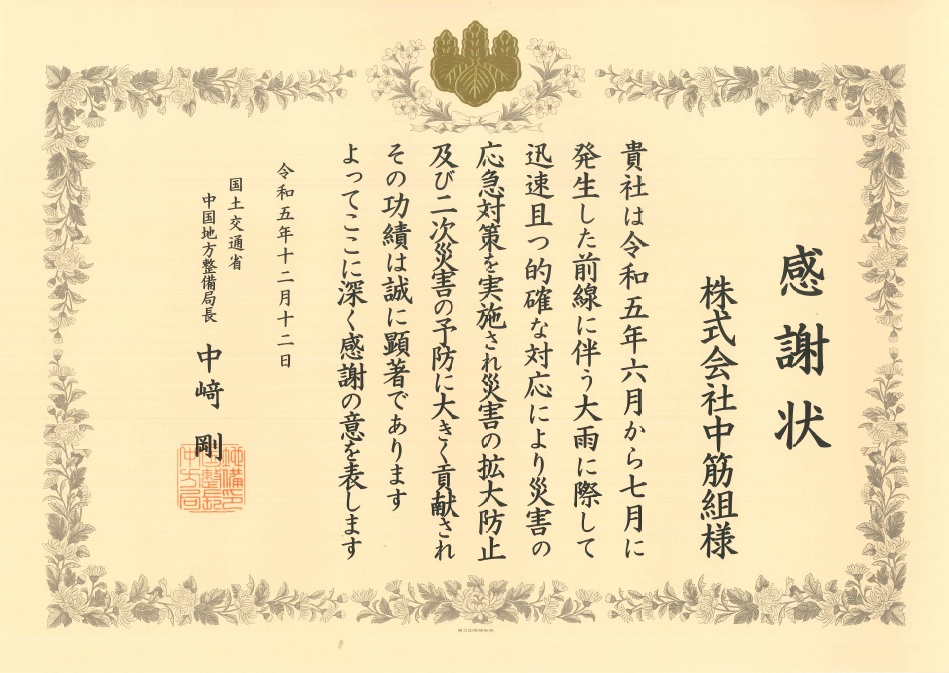 感謝状
株式会社中筋組様
貴社は令和五年六月から七月に
発生した前線に伴う大雨に際して
迅速且つ的確な対応により災害の
応急対策を実施され災害の拡大防止
及び二次災害の予防に大きく貢献され
その功績は誠に顕著であります
よってここに深く感謝の意を表します
令和五年十二月十二日
国土交通省
中国地方整備局長
中﨑剛